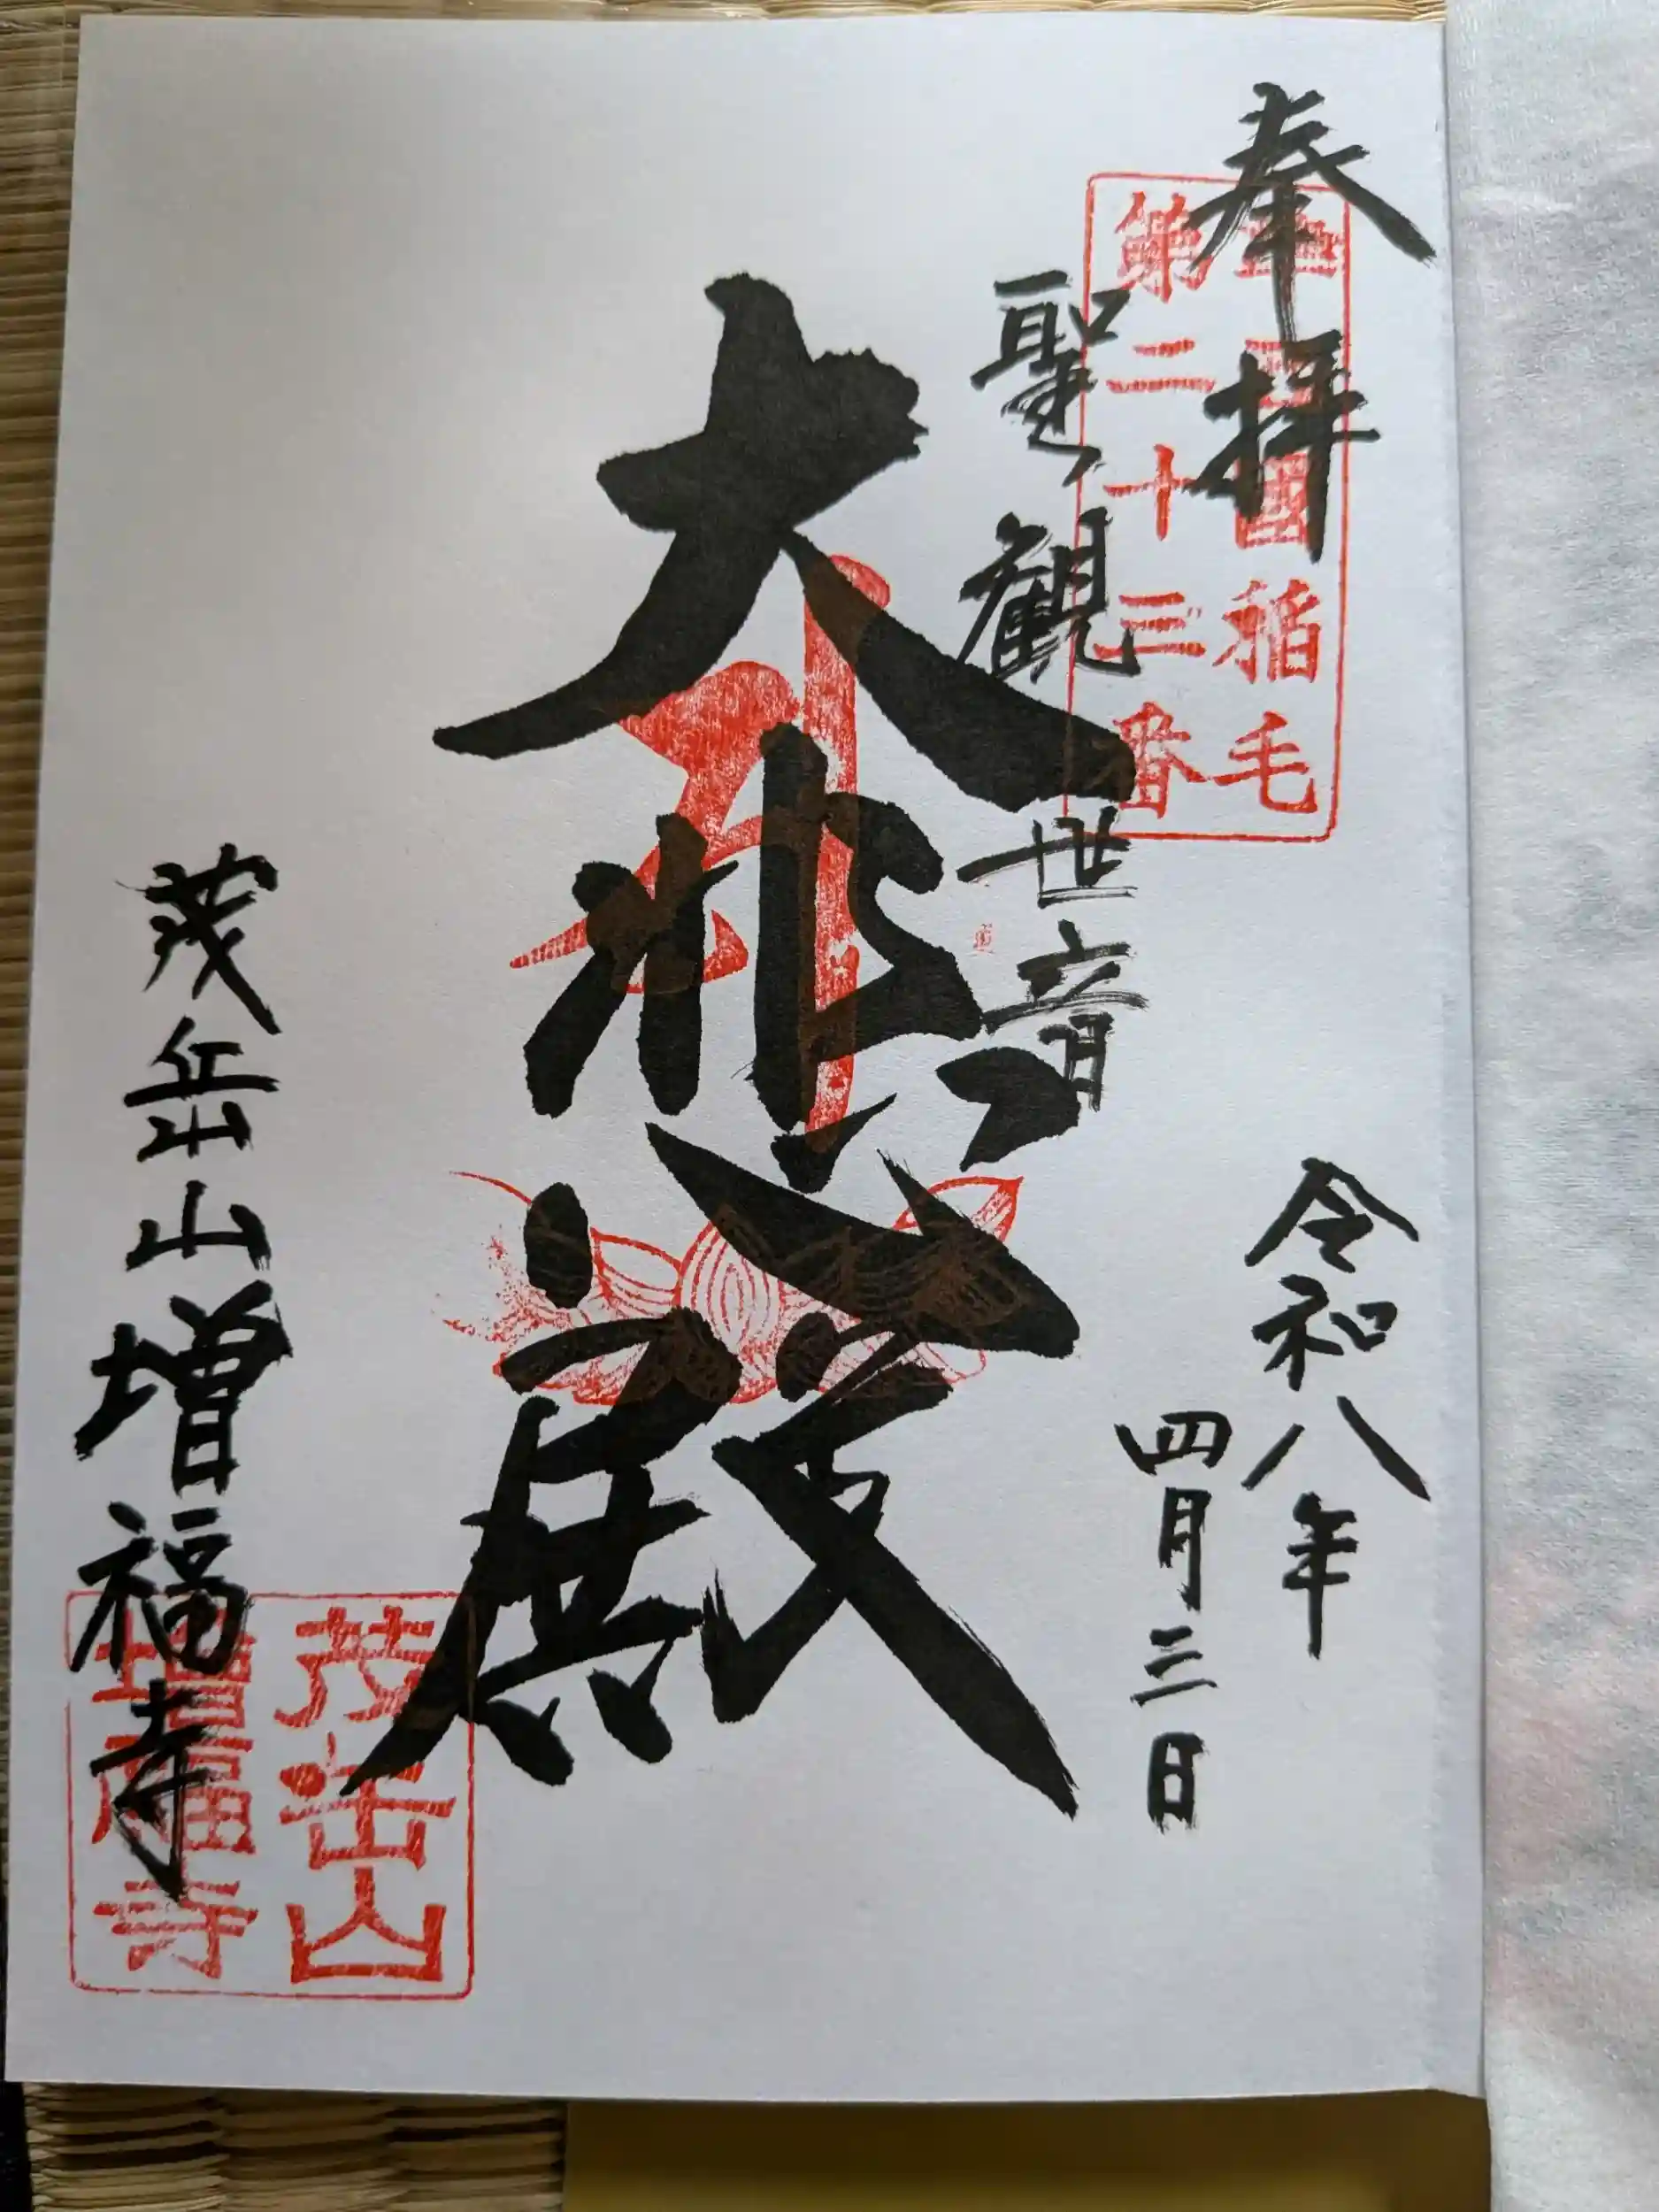 奉拝
準西國稲毛
第二十三番
令和八年
四月三日
聖観世音
大悲殿
茂岳山増福寺
茂岳山
増福寺